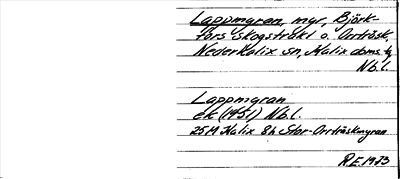 Lappmyran, myr, Björk-
fors skogstrakt o. Orrträsk,
Nederkalix sn, Kalix doms. tg
Nb.l.
Lappmyran
ek (1951) Nb.l.
25M Kalix 8h Stor-Orrträskmyran
R.E. 1973